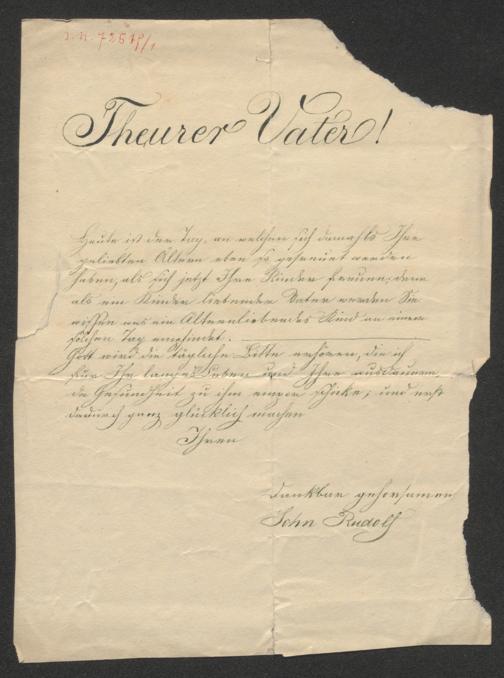 I.N. 72519/1
Theurer Vater!
Heute ist der Tag, an welchen sich damahls Ihre
geliebten Ältern eben so gefreuet werden
haben, als sich jetzt Ihre Kinder freuen; denn
als ein Kinder liebender Vater werden Sie
wissen was ein Älternliebendes Kind an einem
solchen Tag empfindet.
Gott wird die tägliche Bitte erhören, die ich
für Ihr langes Leben und Ihre ausdauern
de Gesundheit zu ihm empor schicke; und erst
dadurch ganz glücklich machen
Ihren
dankbar gehorsamen
Sohn Rudolf